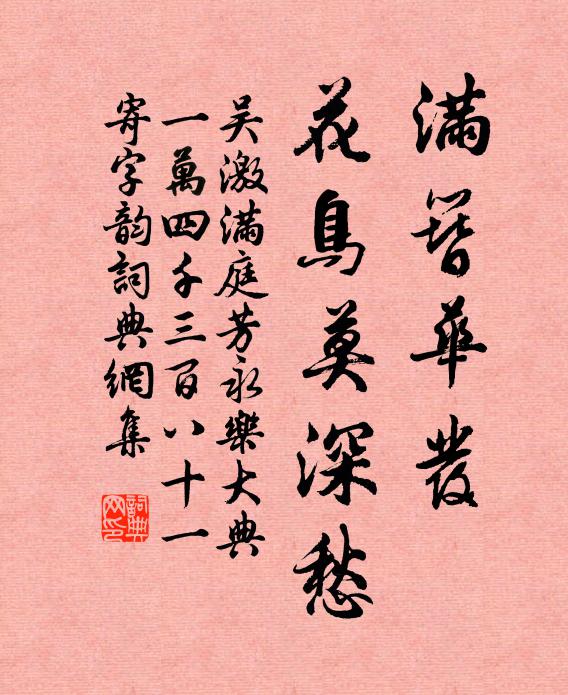 滿簪華發
花鳥莫深愁
吴激滿庭芳永樂大典
一萬四千三百八十一
寄字韵詞典網集
詞典網印